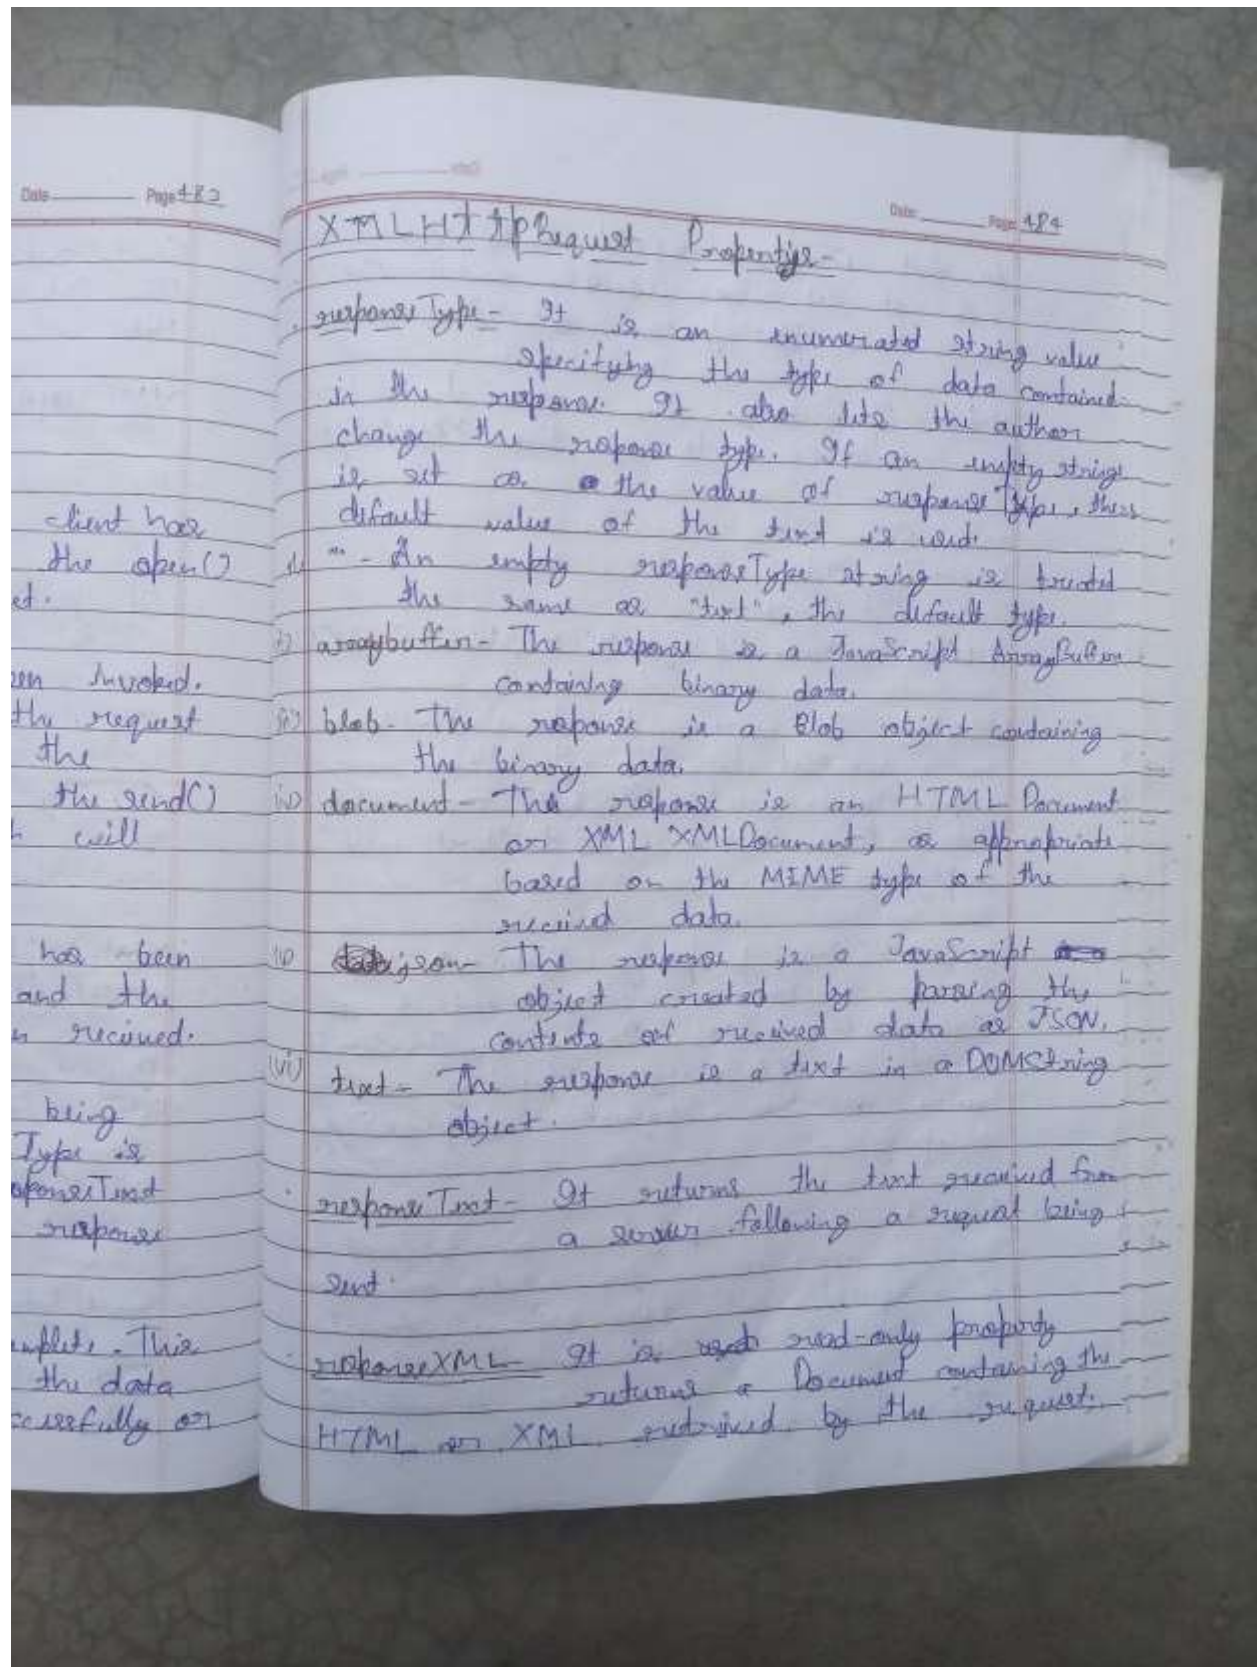 Date Page 482
client has
the open()
et.
en Invoked.
the request
the
the send()
will
has been
and the
n recieved.
being
Type is
sponseText
response
mplete. This
the data
ccessfully or
Date Page 484
XMLHttpRequest Properties-
responseType - It is an enumerated string value
specifying the type of data contained
in the response. It also lets the author
change the response type. If an empty string
is set as the value of responseType, then
default value of the text is used.
"" - An empty responseType string is treated
the same as "text", the default type.
arraybuffer - The response is a JavaScript ArrayBuffer
containing binary data.
iii) blob - The response is a Blob object containing
the binary data.
iv) document - The response is an HTML Document
or XML XMLDocument, as appropriate
based on the MIME type of the
recieved data.
json - The response is a JavaScript
object created by parsing the
contents of recieved data as JSON.
(vi) text - The response is a text in a DOMString
object.
responseText - It returns the text recieved from
a server following a request being
sent.
responseXML - It is read-only property
returns a Document containing the
HTML or XML retrieved by the request.